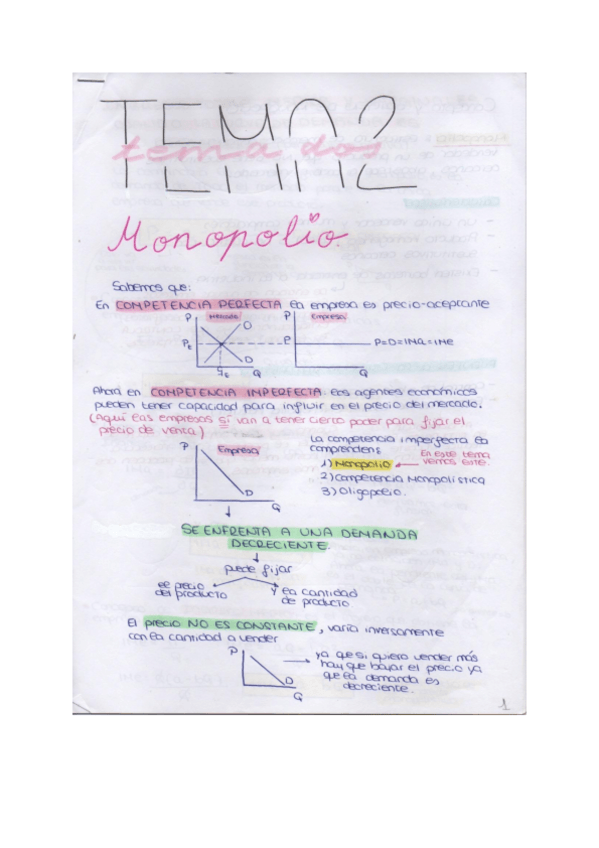 TEMA 2
tema dos
Monopolio
Sabemos que:
En COMPETENCIA PERFECTA la empresa es precio-aceptante
P Mercado O P Empresa
PE P P=D=IMa=IMe
D
qE Q Q
Ahora en COMPETENCIA IMPERFECTA: los agentes económicos
pueden tener capacidad para influir en el precio del mercado.
(Aquí las empresas sí van a tener cierto poder para fijar el
precio de venta)
P Empresa
D
Q
La competencia imperfecta la
comprenden:
1) Monopolio
En este tema
vemos este.
2) Competencia Monopolística
3) Oligopolio.
SE ENFRENTA A UNA DEMANDA
DECRECIENTE.
puede fijar
el precio
del producto
y la cantidad
de producto
El precio NO ES CONSTANTE, varía inversamente
con la cantidad a vender
P
D
Q
ya que si quiero vender más
hay que bajar el precio ya
que la demanda es
decreciente.
1